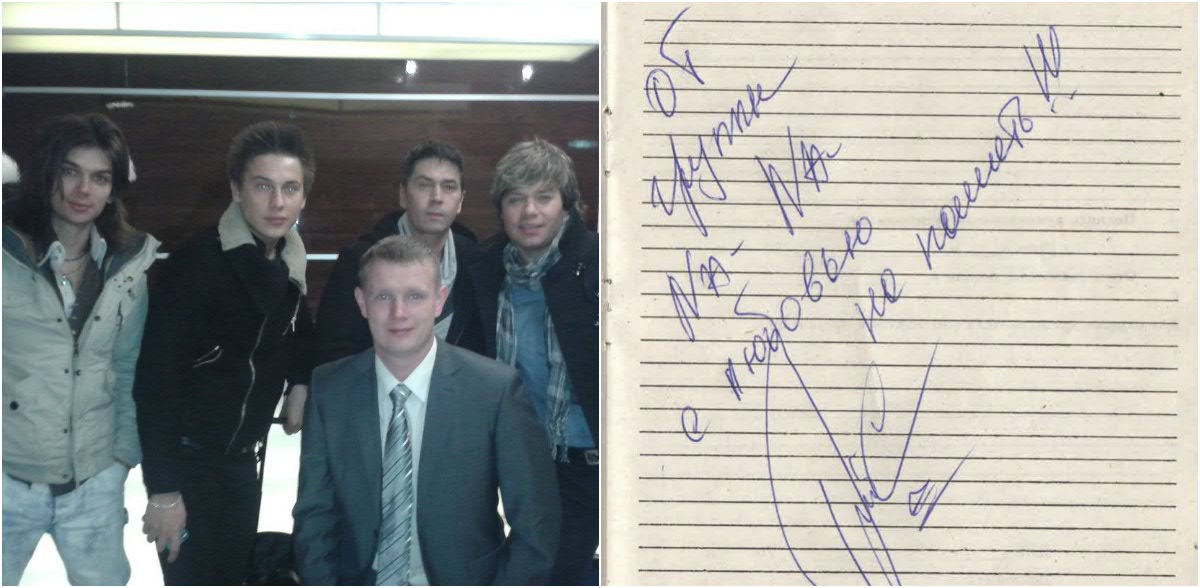 от
группы
На-На
с любовью
на память!!!